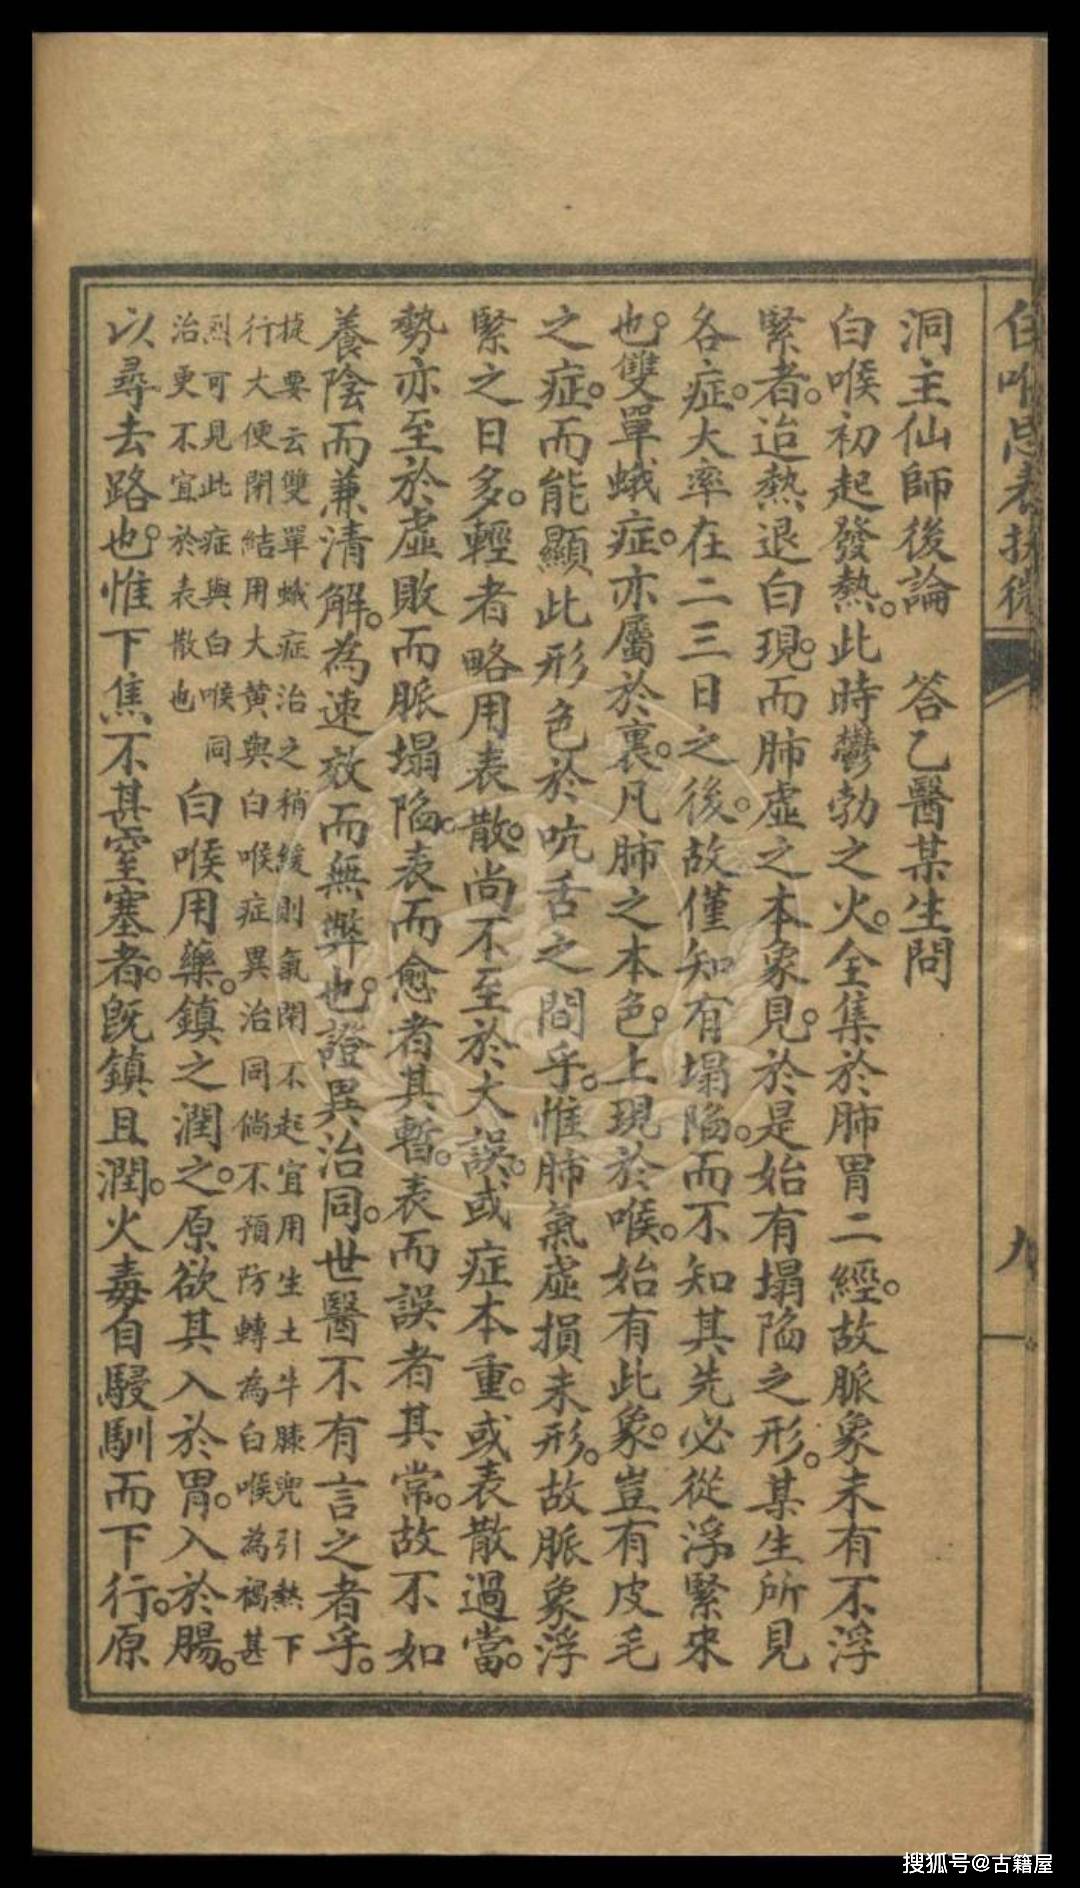 白喉忌表抉微
九
洞主仙師後論　答乙醫某生問
白喉初起發熱。此時鬱勃之火。全集於肺胃二經。故脈象未有不浮
緊者。迨熱退白現。而肺虛之本象見。於是始有塌陷之形。某生所見
各症。大率在二三日之後。故僅知有塌陷。而不知其先必從浮緊來
也。雙單蛾症。亦屬於裏。凡肺之本色。上現於喉。始有此象。豈有皮毛
之症。而能顯此形色於吭舌之間乎。惟肺氣虛損未形。故脈象浮
緊之日多。輕者略用表散。尚不至於大誤。或症本重。或表散過當。
勢亦至於虛敗而脈塌陷。表而愈者其暫。表而誤者其常。故不如
養陰而兼清解。為速效而無弊也。證異治同。世醫不有言之者乎。
挨要云雙單蛾症治之稍緩則氣閉不起宜用生土牛膝兜引熱下
行大便閉結用大黃與白喉症異治同倘不預防轉為白喉為禍甚
烈可見此症與白喉同
治更不宜於表散也
白喉用藥。鎮之潤之。原欲其入於胃。入於腸。
以尋去路也。惟下焦不甚窒塞者。既鎮且潤。火毒自駸馴而下行。原
搜狐号@古籍屋